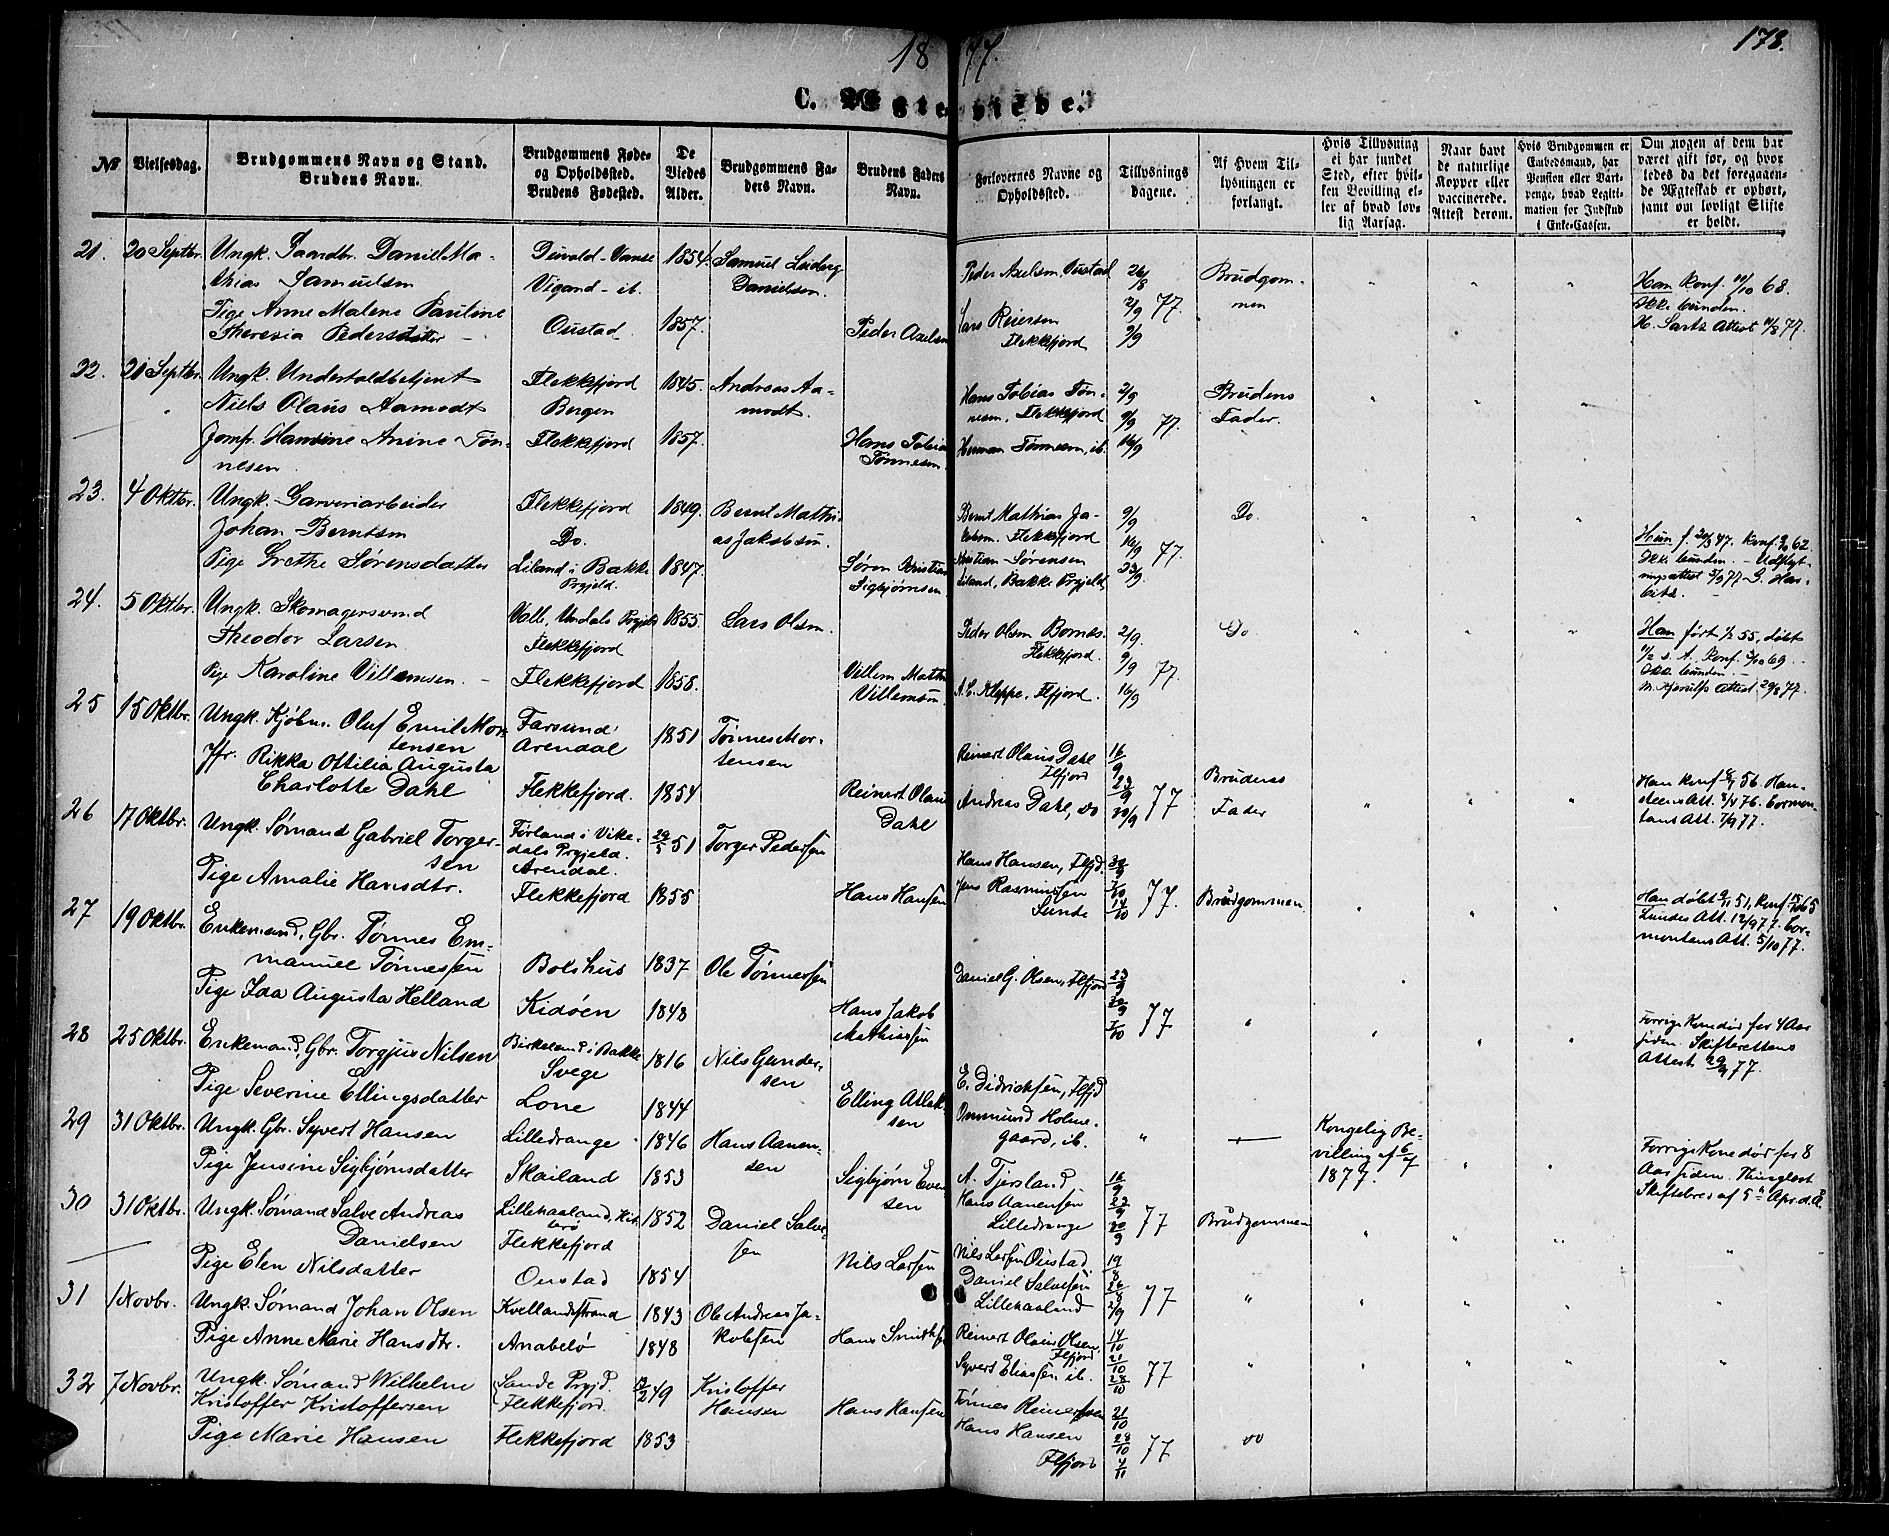 1877.
178.
C. Ægteviede.
No
Vielsesdag.
Brudgommens Navn og Stand.
Brudens Navn.
Brudgommens Føde-
og Opholdssted.
Brudens Fødested.
De
Viedes
Alder.
Brudgommens Fa-
ders Navn.
Brudens Faders
Navn.
Forlovernes Navne og
Opholdssted.
Tillysnings
dagene.
Af Hvem Til-
lysningen er
forlangt.
Hvis Tillysning
ei har fundet
Sted, efter hvil-
ken Bevilling el-
ler af hvad lov-
lig Aarsag.
Naar havt
de naturlige
Kopper eller
vaccinerede.
Attest derom.
Hvis Brudgommen er
Embedsmand, har
Pension eller Vart-
penge, hvad Legiti-
mation for Indskud
i Enke-Cassen.
Om nogen af dem har
været gift før, og hvor
ledes da det foregaaen-
de Ægteskab er ophørt,
samt om lovligt Skifte
er holdt.
21. 20 Septbr. Ungk. Daniel Ma-
thias Samuelsen
Vanse
Vigand - ib.
1854.
Samuel
Danielsen.
Pige Anne Malene Pauline
Theresia Pedersdatter
Oustad
1857.
Peder Axelsen
Peder Axelsen, Oustad
Lars Reiersen
Flekkefjord
26/8
2/9 77.
9/9
Brudgom-
men
Han Konf. 68.
Ikke bunden.
Attest 77.
22. 21 Septbr. Ungk. Undertoldbetjent
Niels Olaus Aamodt
Flekkefjord
Bergen
1845.
Andreas Aa-
modt.
Jomfr. Hansine Anine Tøn-
nesen
Flekkefjord
1857.
Hans Tobias
Tønnesen
Hans Tobias Tøn-
nesen, Flekkefjord
Herman Tønnesen, ib.
2/9
9/9 77.
16/9
Brudens
Fader.
23. 4 Oktbr. Ungk. Garveriarbeider
Johan Berntsen
Flekkefjord
Do.
1849.
Bernt Mathi-
as Jakobsen.
Pige Grethe Sørensdatter
Liland i Bakke
Prgjeld.
1847.
Søren Kristian
Sigbjørnsen
Bernt Mathias Ja-
kobsen. Flekkefjord
Kristian Sørensen
Liland, Bakke Prgjeld.
9/9
16/9 77.
23/9.
Do.
Ikke bunden. - Udflyt-
24. 5 Oktbr. Ungk. Skomagersvend
Theodor Larsen
Valle, Undals Prgjeld
Flekkefjord
1855.
Lars Olsen.
Pige Karoline Villemsen.
Flekkefjord
1858.
Villem Mathi
Villemsen
Peder Olsen Bornes.
Flekkefjord.
A. C. Kleppe, Flfjord.
2/9.
9/9 77.
16/9
Do
Han født 55, døbt
s. A., Konf. 69.
Ikke bunden.
Attest 77.
25 15 Oktbr. Ungk. Kjøbm. Oluf Emil Mor-
tensen
Farsund
Arendal
1851
Tønnes Mor-
tensen
Jfr. Rikka Ottilia Augusta
Charlotte Dahl
Flekkefjord.
1854
Reinert Olaus
Dahl
Reinert Olaus Dahl
Flfjord
Andreas Dahl, do
16/9
23/9 77
30/9
Brudens
Fader
Han Konf 56. Han-
steens Att. 76. Cormon-
tans Att. 7/9 77.
26 17 Oktbr. Ungk. Sømand Gabriel Torger-
sen
Førland i Vike-
dals Prgjeld.
Arendal.
29/5 51
Torger Pedersen
Pige Amalie Hansdtr.
Flekkefjord
1855
Hans Hansen
Hans Hansen, Flfjd.
Jens Rasmussen
Sunde
30/9
7/10 77.
14/10
Brudgommen
Han døbt 51, Konf 65
Lundes Att. 12/9 77. Cor-
montans Att. 5/10 77.
27 19 Oktbr. Enkemand, Gbr. Tønnes Em-
manuel Tønnessen
Bolshus
1837
Ole Tønnessen
Pige Ida Augusta Helland
Kidøen
1848
Hans Jakob
Mathiassen
Daniel G. Olsen, Flfjord
23/9
30/9
7/10 77
"
Forrige Kone død for 4 Aar
siden. Skifterettens
Attest 77.
28 25 Oktbr. Enkemand, Gbr. Torgjus Nilsen
Birkeland i Bakke
Svege
1816
Nils Gunder-
sen
Pige Severine Ellingsdatter
Lone
1844
Elling Atlak-
sen
E. Didriksen, Flfjd
Ommund Holme-
gaard, ib.
"
Kongelig Be-
villing af 6/7
1877.
Forrige Kone død for 8
Aar siden. Thinglæst
Skiftebrev af 5te Apr. d. A.
29 31 Oktbr. Ungk. Gbr. Syvert Hansen
Lilledrange
1846
Hans Aanen-
sen
Pige Jensine Sigbjørnsdatter
Skailand
1853
Sigbjørn Even
sen
A. Tjersland
Hans Aanensen
Lilledrange
16/9
23/9
30/9 77
Brudgommen
30 31 Oktbr. Ungk. Sømand Salve Andreas
Danielsen
Lillehaaland, Hit-
terø
Flekkefjord
1852
Daniel Salve-
sen
Pige Elen Nilsdatter
Oustad
1854
Nils Larsen
Nils Larsen Oustad
Daniel Salvesen
Lillehaaland
19/8
26/8 77
2/9
"
31 1 Novbr. Ungk. Sømand Johan Olsen
Kvellandstrand
1843
Ole Andreas Ja-
kobsen
Pige Anne Marie Hansdtr.
Anabelø
1848
Hans
Reinert Olaus Olsen,
Flfjord
Syvert Eliassen ib.
14/10
21/10
28/10 77
"
32 7 Novbr. Ungk. Sømand Wilhelm
Kristoffer Kristoffersen
Sande Prgjd.
Flekkefjord.
49
Kristoffer
Hansen
Pige Marie Hansen
Flekkefjord
1853
Hans Hansen
Tønnes Reinertsen
Hans Hansen
Flfjord
21/10
28/10 77
4/11
do